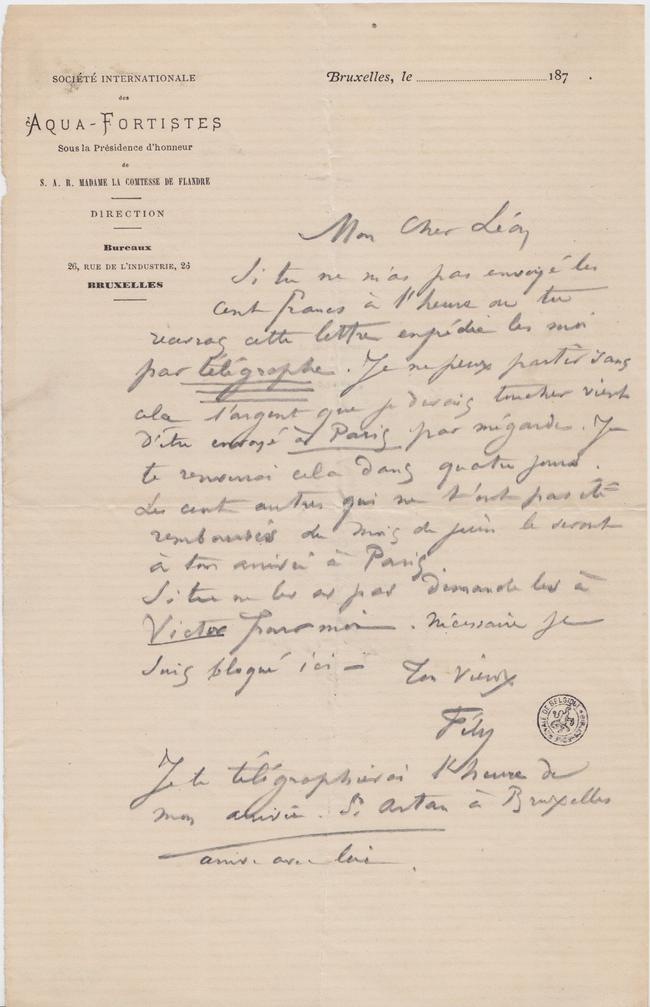 SOCIÉTÉ INTERNATIONALE
des
AQUA-FORTISTES
Sous la Présidence d'honneur
de
S. A. R. MADAME LA COMTESSE DE FLANDRE
DIRECTION
Bureaux
26, RUE DE L'INDUSTRIE, 26
BRUXELLES
Bruxelles, le 187 .
Mon Cher Léon
Si tu ne m'as pas envoyé les
cent francs à l'heure ou tu
recevras cette lettre expédie les moi
par télégraphe. Je ne peux partir sans
cela l'argent que je devais toucher vient
d'être envoyé à Paris par mégarde. Je
te renverrai cela dans quatre jours.
Les cent autres qui ne t'ont pas été
remboursés du mois de juin le seront
à ton arrivée à Paris
Si tu ne les as pas demande les à
Victor pour moi. Nécessaire je
suis bloqué ici – Ton vieux
Fély
Je te télégraphierai l'heure de
mon arrivée. Si Artan à Bruxelles
avec lui.